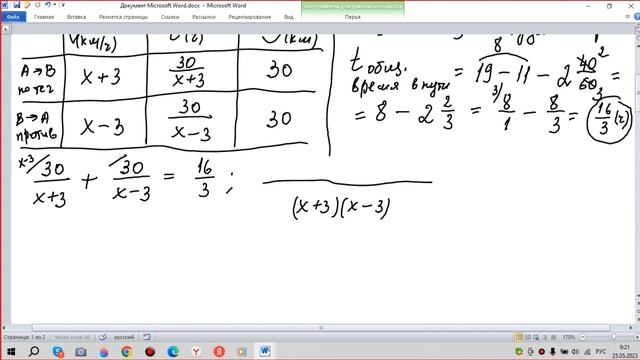 Документ Microsoft Word.docx - Microsoft Word
Инструменты для рукописного ввода
Файл Главная Вставка Разметка страницы Ссылки Рассылки Рецензирование Вид Перья
V(км/ч)
(км)
A→B по теч
x+3
30/(x+3)
30
B→A против
x-3
30/(x-3)
30
8
t общ. время в пути = 19 - 11 - 2 40/60 =
= 8 - 2 2/3 = 8/1 - 8/3 = 16/3 (ч)
x-3/ 30/(x+3) + 30/(x-3) = 16/3 ;
(x+3)(x-3)
Страница: 1 из 2 Число слов: 48 русский 170%
РУС 9:21
25.05.2023